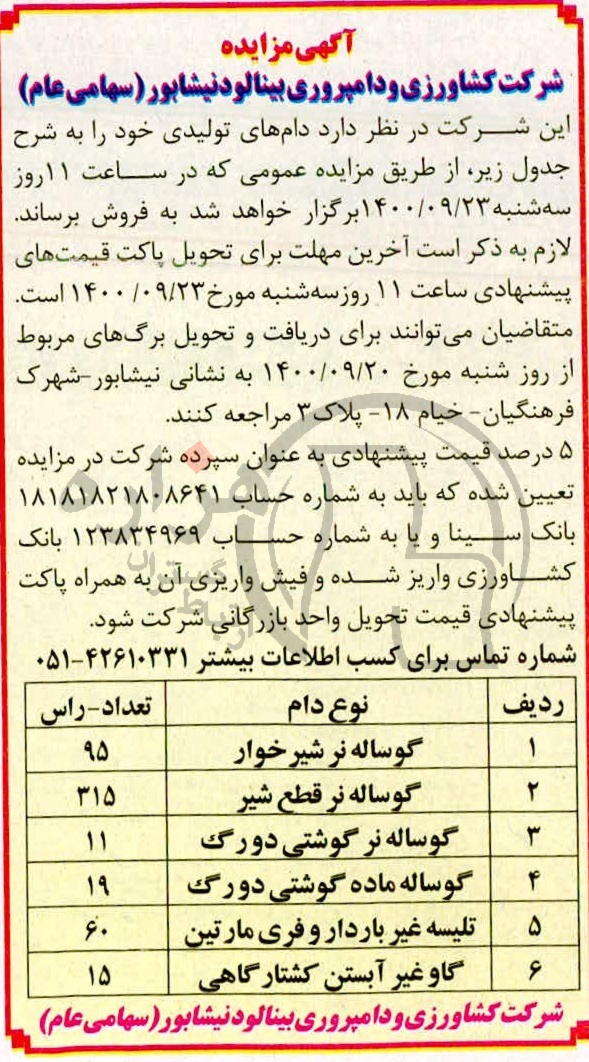 آگهی مزایده
شرکت کشاورزی و دامپروری بینالود نیشابور (سهامی عام)
این شرکت در نظر دارد دام‌های تولیدی خود را به شرح
جدول زیر، از طریق مزایده عمومی که در ساعت ۱۱روز
سه‌شنبه۱۴۰۰/۰۹/۲۳برگزار خواهد شد به فروش برساند.
لازم به ذکر است آخرین مهلت برای تحویل پاکت قیمت‌های
پیشنهادی ساعت ۱۱ روزسه‌شنبه مورخ۱۴۰۰/۰۹/۲۳ است.
متقاضیان می‌توانند برای دریافت و تحویل برگ‌های مربوط
از روز شنبه مورخ ۱۴۰۰/۰۹/۲۰ به نشانی نیشابور-شهرک
فرهنگیان- خیام ۱۸- پلاک۳ مراجعه کنند.
۵ درصد قیمت پیشنهادی به عنوان سپرده شرکت در مزایده
تعیین شده که باید به شماره حساب ۱۸۱۸۱۸۲۱۸۰۸۶۴۱
بانک سینا و یا به شماره حساب ۱۲۳۸۳۴۹۶۹ بانک
کشاورزی واریز شده و فیش واریزی آن به همراه پاکت
پیشنهادی قیمت تحویل واحد بازرگانی شرکت شود.
شماره تماس برای کسب اطلاعات بیشتر ۴۲۶۱۰۳۳۱-۰۵۱
ردیف نوع دام تعداد-راس
۱ گوساله نر شیرخوار ۹۵
۲ گوساله نر قطع شیر ۳۱۵
۳ گوساله نر گوشتی دو رگ ۱۱
۴ گوساله ماده گوشتی دو رگ ۱۹
۵ تلیسه غیر باردار و فری مارتین ۶۰
۶ گاو غیر آبستن کشتارگاهی ۱۵
شرکت کشاورزی و دامپروری بینالود نیشابور (سهامی عام)